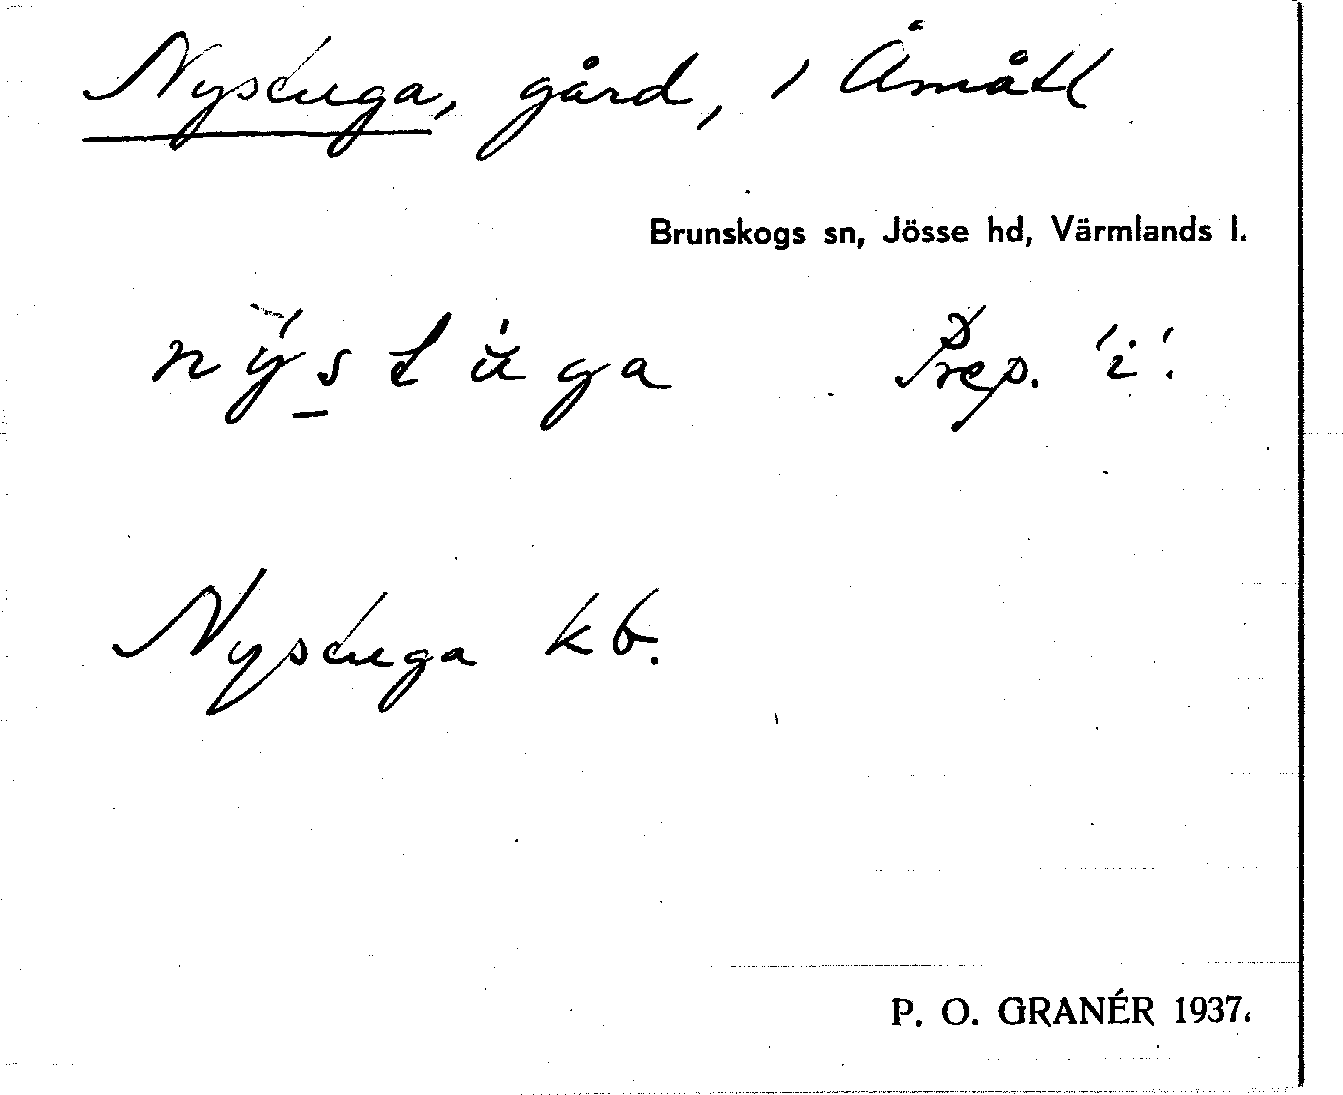 Nystuga, gård, i Åmått
Brunskogs sn, Jösse hd, Värmlands l.
nýstu̇ga Prep. 'i'.
Nystuga kb.
P. O. GRANÉR 1937.